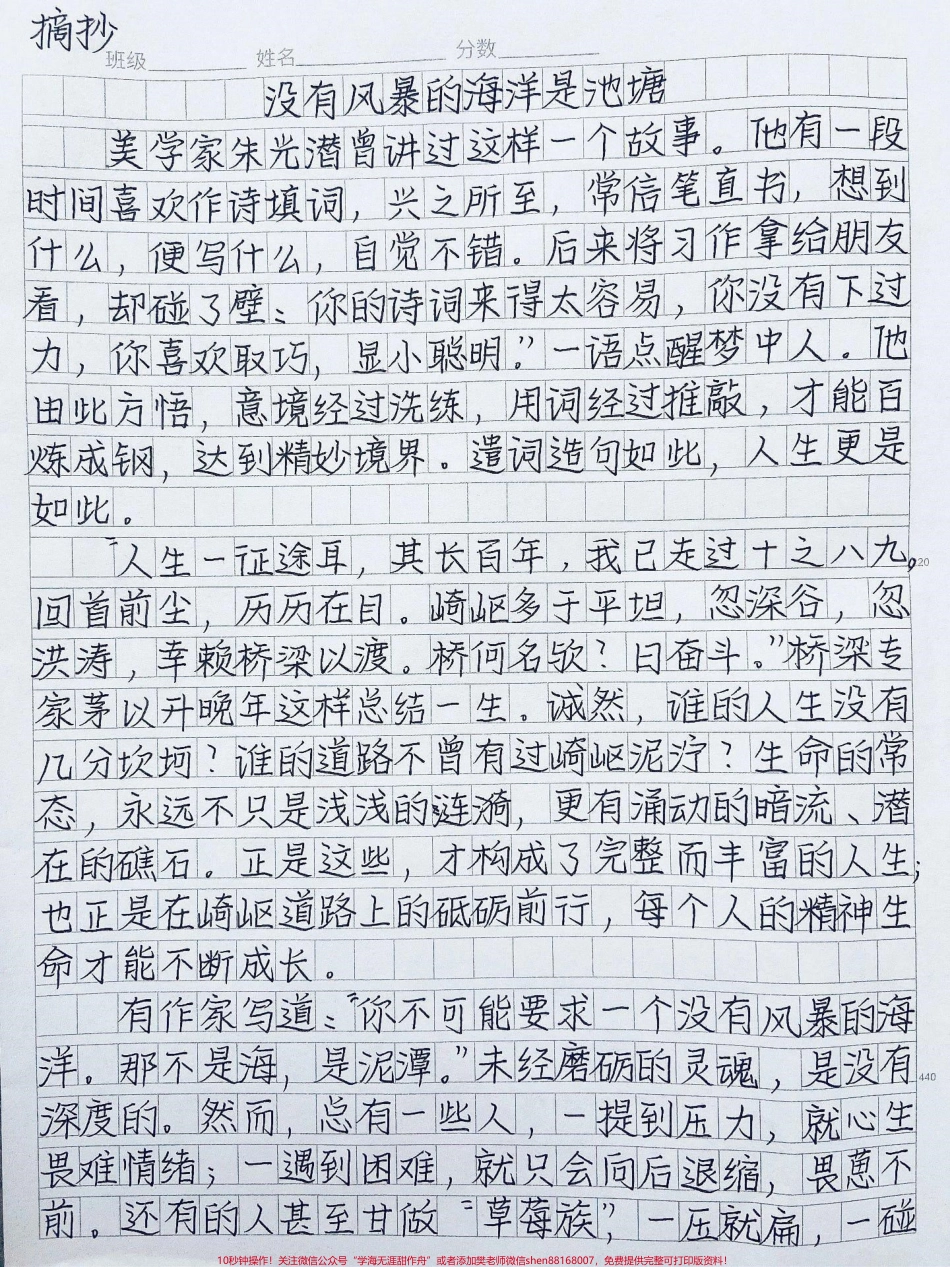 摘抄
班级 姓名 分数
没有风暴的海洋是池塘
美学家朱光潜曾讲过这样一个故事。他有一段
时间喜欢作诗填词，兴之所至，常信笔直书，想到
什么，便写什么，自觉不错。后来将习作拿给朋友
看，却碰了壁：“你的诗词来得太容易，你没有下过
力，你喜欢取巧，显小聪明。”一语点醒梦中人。他
由此方悟，意境经过洗练，用词经过推敲，才能百
炼成钢，达到精妙境界。遣词造句如此，人生更是
如此。
“人生一征途耳，其长百年，我已走过十之八九，
20
回首前尘，历历在目。崎岖多于平坦，忽深谷，忽
洪涛，幸赖桥梁以渡。桥何名欤？曰奋斗。”桥梁专
家茅以升晚年这样总结一生。诚然，谁的人生没有
几分坎坷？谁的道路不曾有过崎岖泥泞？生命的常
态，永远不只是浅浅的涟漪，更有涌动的暗流、潜
在的礁石。正是这些，才构成了完整而丰富的人生；
也正是在崎岖道路上的砥砺前行，每个人的精神生
命才能不断成长。
有作家写道：“你不可能要求一个没有风暴的海
洋。那不是海，是泥潭。”未经磨砺的灵魂，是没有
440
深度的。然而，总有一些人，一提到压力，就心生
畏难情绪；一遇到困难，就只会向后退缩，畏葸不
前。还有的人甚至甘做“草莓族”，一压就扁，一碰
10秒钟操作！关注微信公众号“学海无涯甜作舟”或者添加樊老师微信shen88168007，免费提供完整可打印版资料！